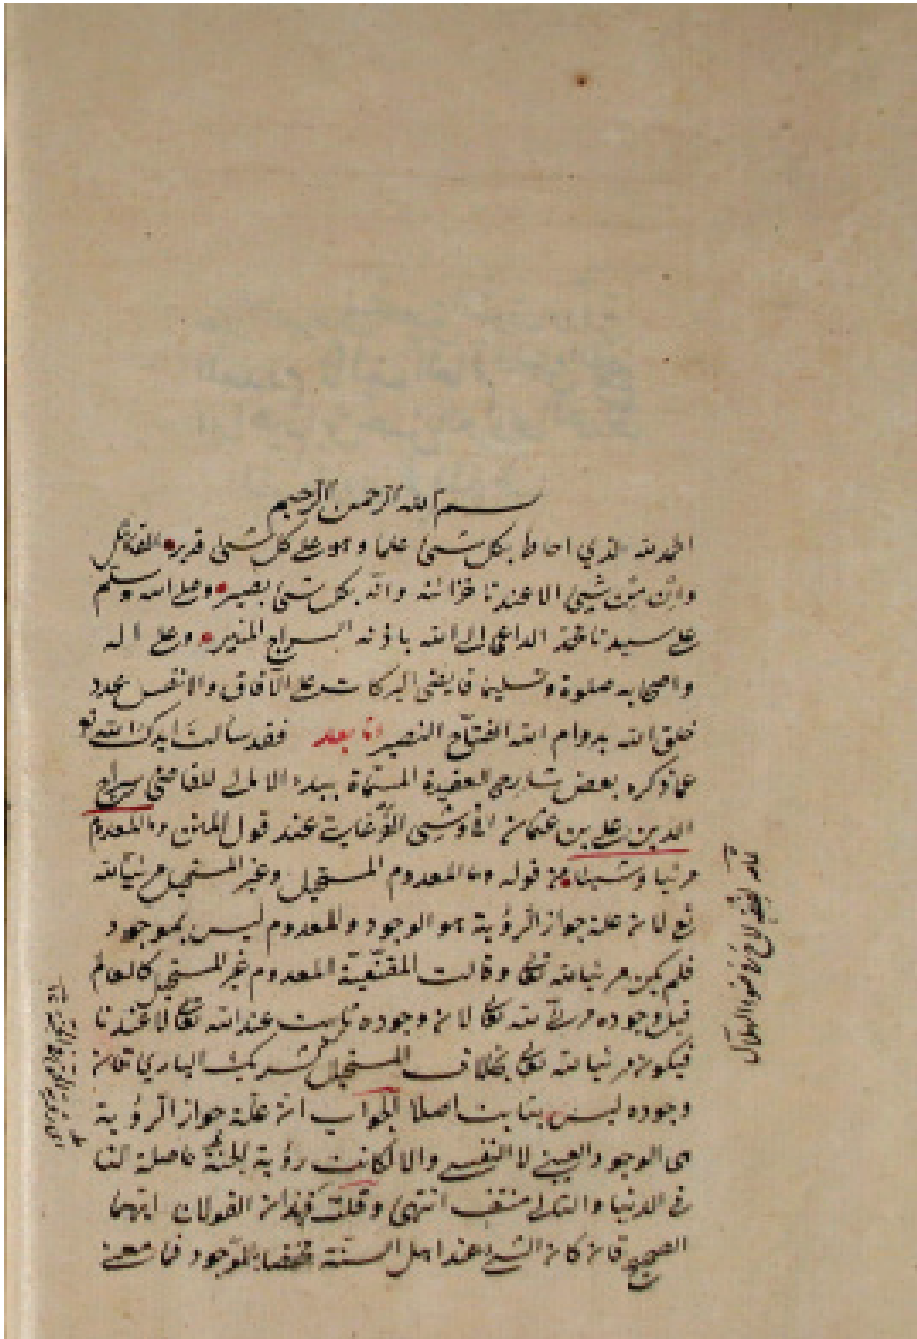 بسم الله الرحمن الرحيم
الحمد لله الذي احاط بكل شئ علما وهو على كل شئ قدير القائل
وان من شئ الا عندنا خزائنه وانه بكل شئ بصير وصلى الله وسلم
على سيدنا محمد الداعي الى الله باذنه السراج المنير وعلى اله
واصحابه صلوة وتسليما البركات على الآفاق والانفس
خلق الله بدوام الله الفتاح النصير اما بعد فقد سألت ايدك الله تع
عما ذكره بعض شارحي العقيدة المسماة ببدء الامالى للقاضي سراج
الدين على بن عثمان الاوشى عند قول الماتن وما المعدوم
مرئيا وشيئا من قوله وما المعدوم المستحيل وغير المستحيل مرئيا لله
تع لان علة جواز الرؤية هو الوجود والمعدوم ليس بموجود
فلم يكن مرئيا لله تعالى وقالت المقنعية المعدوم غير المستحيل كالعالم
قبل وجوده مرئ لله تعالى لان وجوده ثابت عند الله تعالى لا عندنا
فيكون مرئيا لله تعالى بخلاف المستحيل كشريك الباري فان
وجوده ليس بثابت اصلا الجواب ان علة جواز الرؤية
هى الوجود العيني لا النفسي والا لكانت رؤية الجنة حاصلة لنا
في الدنيا والتالى منتف انتهى وقلت فهذان القولان ايهما
الصحيح فان كان الشئ عند اهل السنة مختصا بالموجود فما معنى